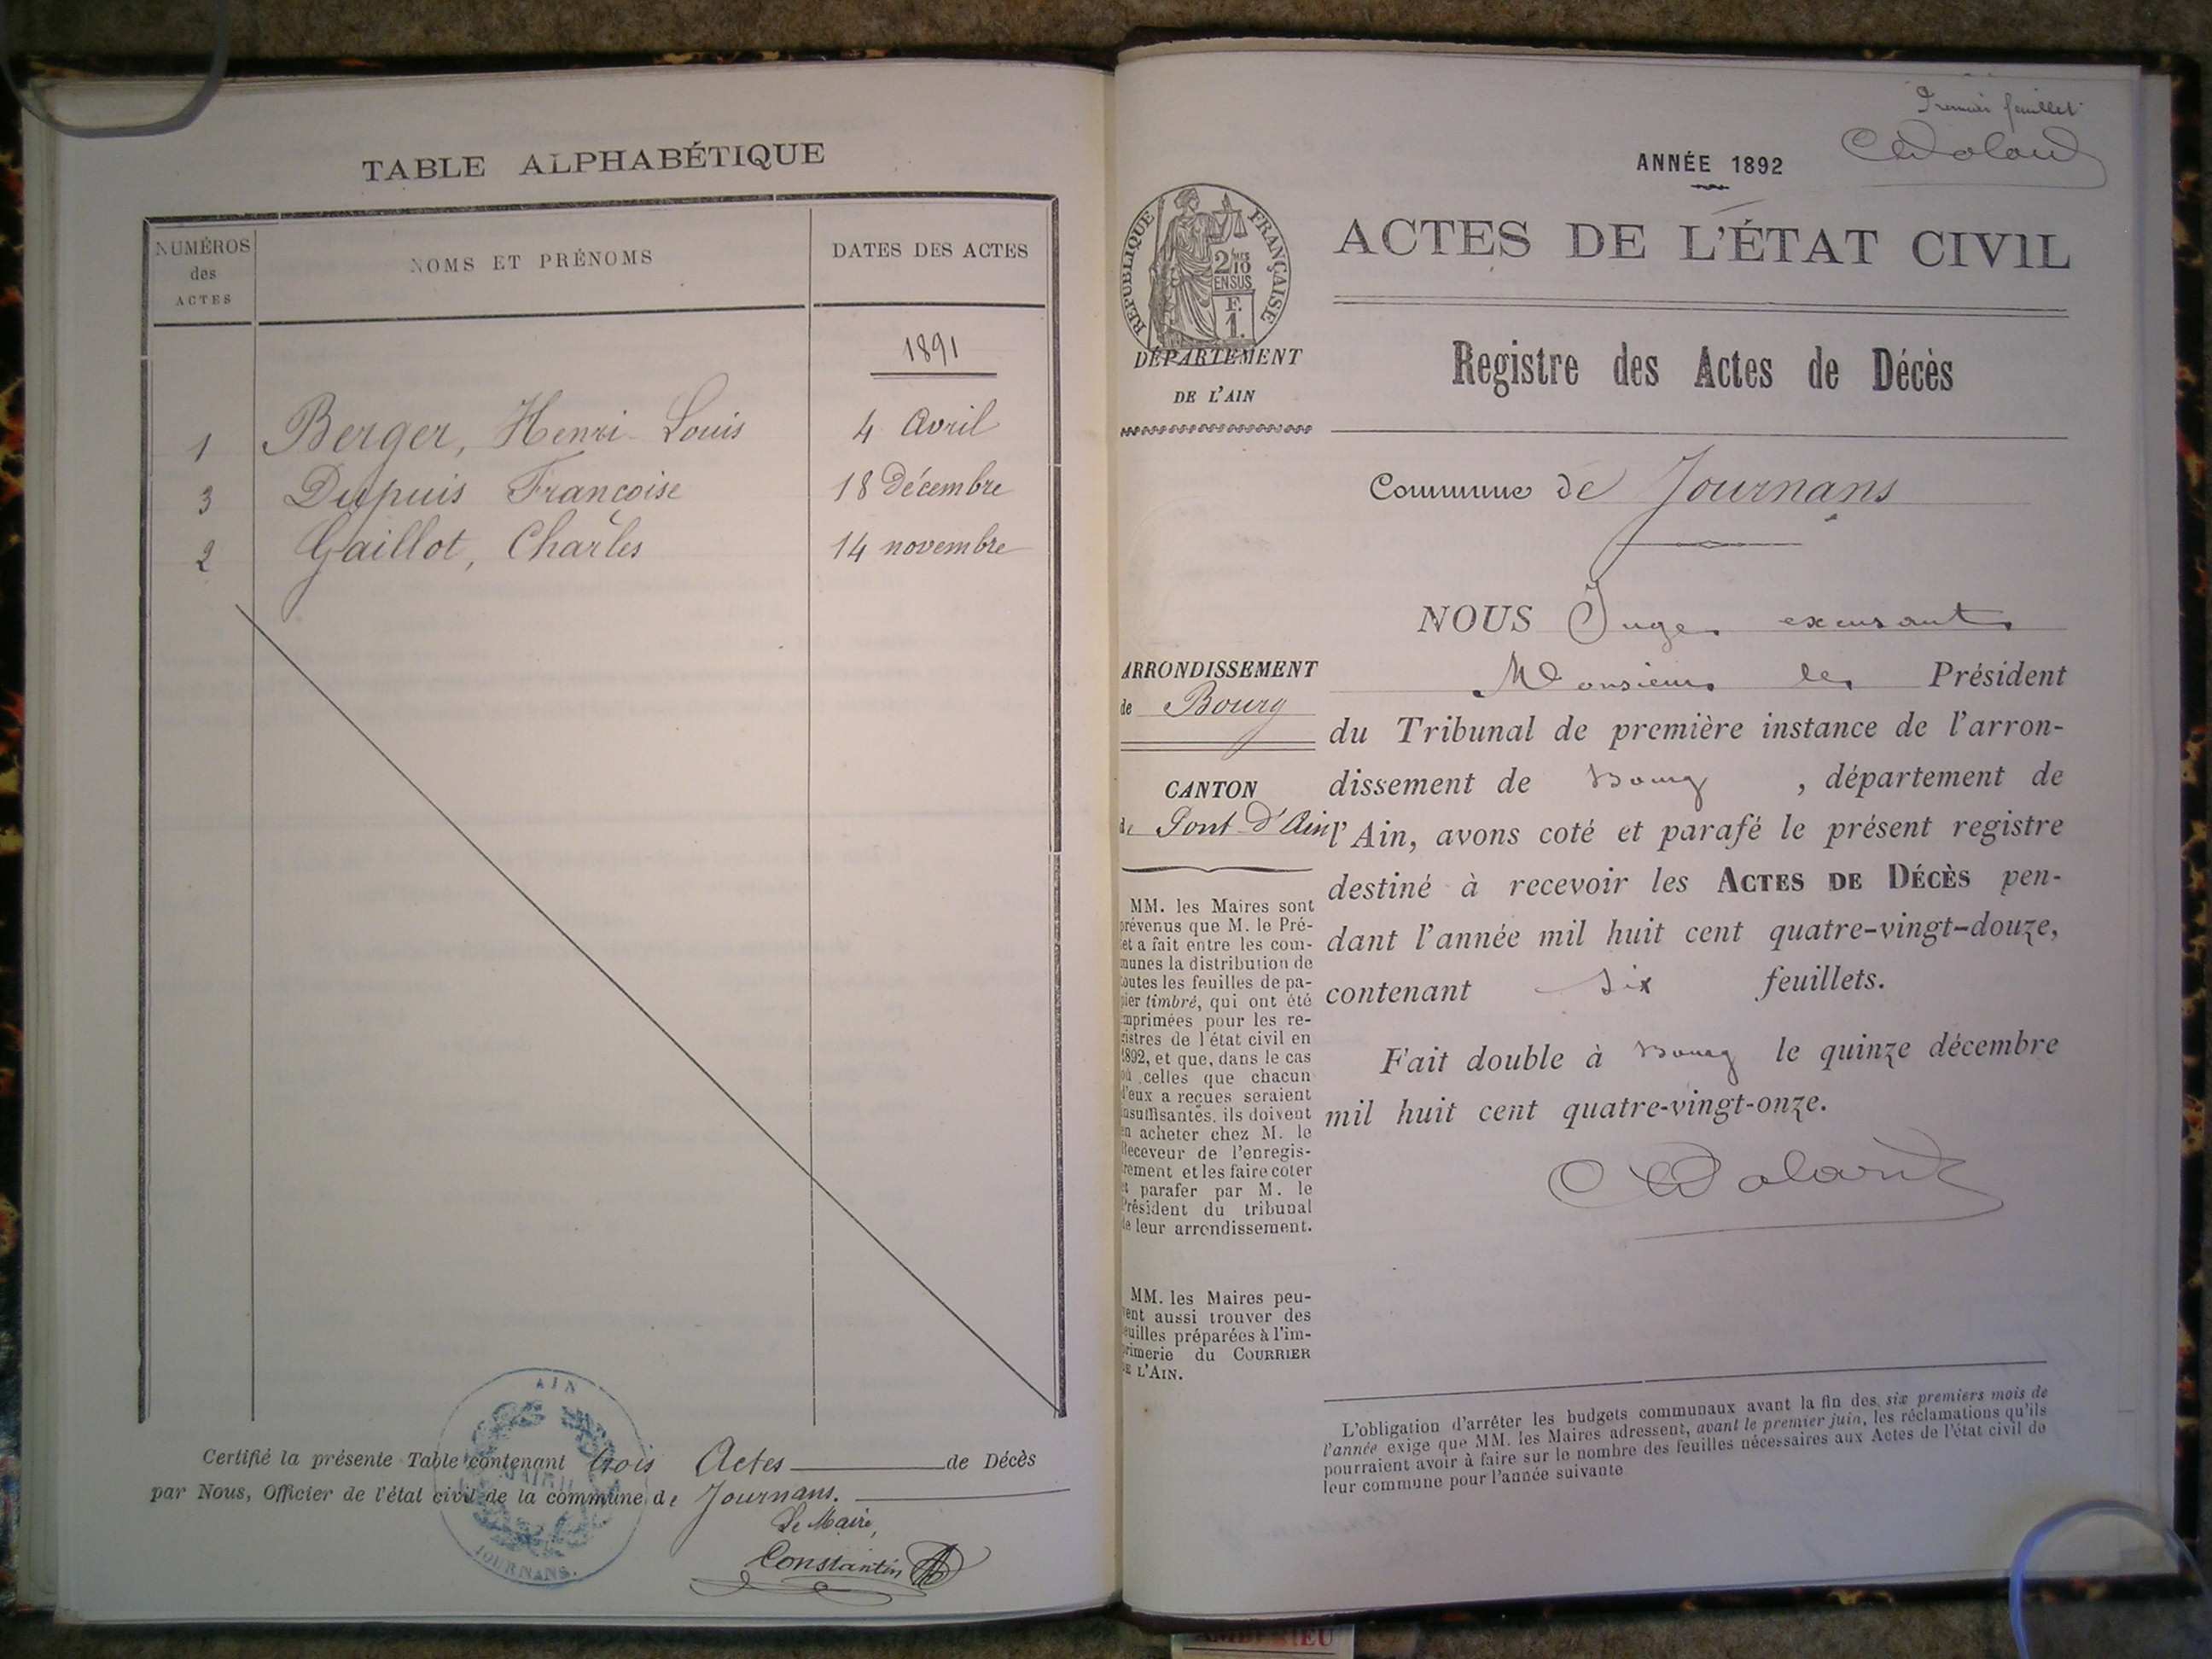 TABLE ALPHABÉTIQUE
NUMÉROS
des
ACTES
NOMS ET PRÉNOMS
DATES DES ACTES
1891
1 Berger, Henri-Louis 4 Avril
3 Dupuis Francoise 18 Décembre
2 Gaillot, Charles 14 novembre
Certifié la présente Table contenant trois Actes de Décès
par Nous, Officier de l'état civil de la commune de Journans.
Le Maire,
Constantin
AIN
MAIRIE
JOURNANS.
Premier feuillet
ANNÉE 1892
RÉPUBLIQUE FRANÇAISE
2/10 MES
EN SUS
F.
1.
ACTES DE L'ÉTAT CIVIL
DÉPARTEMENT
DE L'AIN
Registre des Actes de Décès
Commune de Journans
NOUS Juge
Monsieur le Président
du Tribunal de première instance de l'arron-
dissement de Bourg, département de
l'Ain, avons coté et parafé le présent registre
destiné à recevoir les ACTES DE DÉCÈS pen-
dant l'année mil huit cent quatre-vingt-douze,
contenant six feuillets.
Fait double à Bourg le quinze décembre
mil huit cent quatre-vingt-onze.
ARRONDISSEMENT
de Bourg
CANTON
de Pont d'Ain
MM. les Maires sont
prévenus que M. le Pré-
fet a fait entre les com-
munes la distribution de
toutes les feuilles de pa-
pier timbré, qui ont été
imprimées pour les re-
gistres de l'état civil en
1892, et que, dans le cas
où celles que chacun
d'eux a reçues seraient
insuffisantes, ils doivent
en acheter chez M. le
Receveur de l'enregis-
trement et les faire coter
et parafer par M. le
Président du tribunal
de leur arrondissement.
MM. les Maires peu-
vent aussi trouver des
feuilles préparées à l'im-
primerie du COURRIER
DE L'AIN.
L'obligation d'arrêter les budgets communaux avant la fin des six premiers mois de
l'année exige que MM. les Maires adressent, avant le premier juin, les réclamations qu'ils
pourraient avoir à faire sur le nombre des feuilles nécessaires aux Actes de l'état civil de
leur commune pour l'année suivante